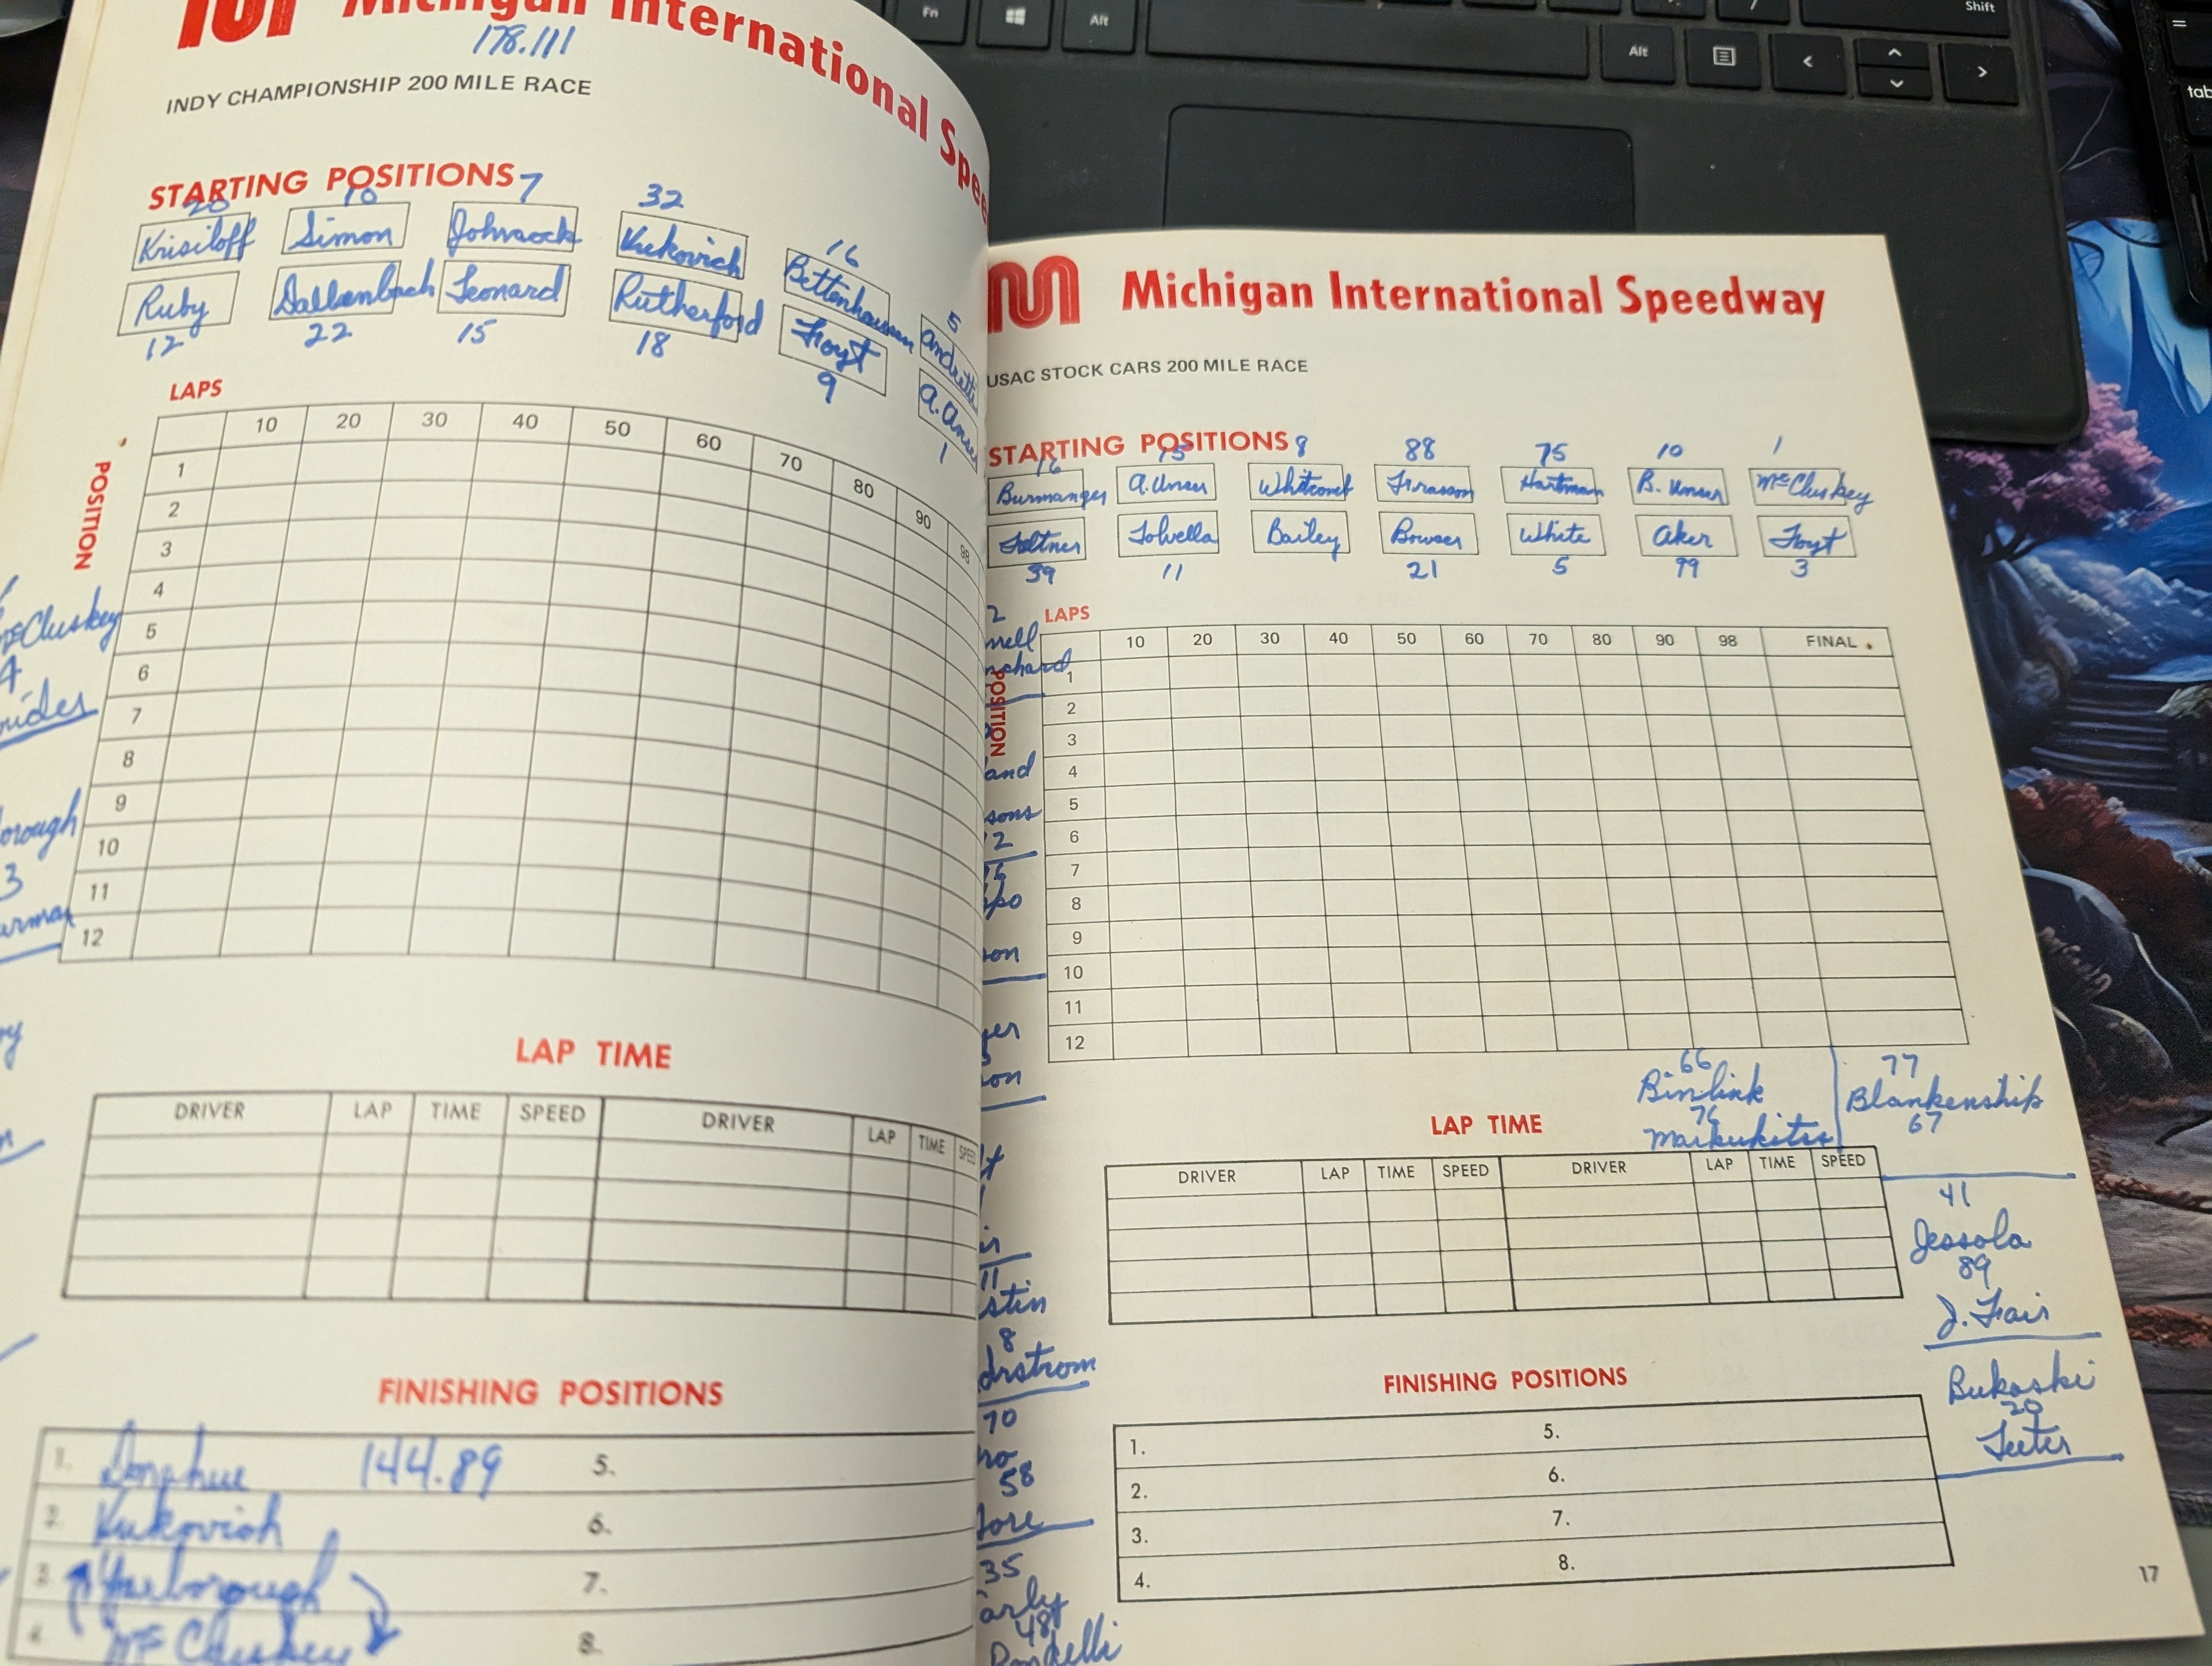 Michigan International Spee
178.111
INDY CHAMPIONSHIP 200 MILE RACE
STARTING POSITIONS
20 10 7 32 16 5
Krisiloff Simon Johncock Kukovich Bettenhausen Andretti
Ruby Dallenbach Leonard Rutherford Foyt A. Unser
12 22 15 18 9 1
LAPS
10 20 30 40 50 60 70 80 90 98
POSITION
1
2
3
4
5
6
7
8
9
10
11
12
McCluskey
4
orough
3
LAP TIME
DRIVER LAP TIME SPEED DRIVER LAP TIME SPEED
FINISHING POSITIONS
1. Donohue 144.89 5.
2. Kukovich 6.
3. Yarborough 7.
4. McCluskey 8.
Michigan International Speedway
USAC STOCK CARS 200 MILE RACE
STARTING POSITIONS
16 75 8 88 75 10 1
A. Unser Whitcomb Hartman B. Unser McCluskey
Feltner Bailey Bowser White Aker Foyt
39 11 21 5 99 3
LAPS
10 20 30 40 50 60 70 80 90 98 FINAL
POSITION
1
2
3
4
5
6
7
8
9
10
11
12
2
nchard
and
sons
2
on
on
11
stin
8
drstrom
70
58
35
48
66
76
77
Blankenship
67
41
Jessola
89
J. Fair
Bukoski
20
Teeter
LAP TIME
DRIVER LAP TIME SPEED DRIVER LAP TIME SPEED
FINISHING POSITIONS
1. 5.
2. 6.
3. 7.
4. 8.
17
Fn
Alt
Alt
Shift
tab